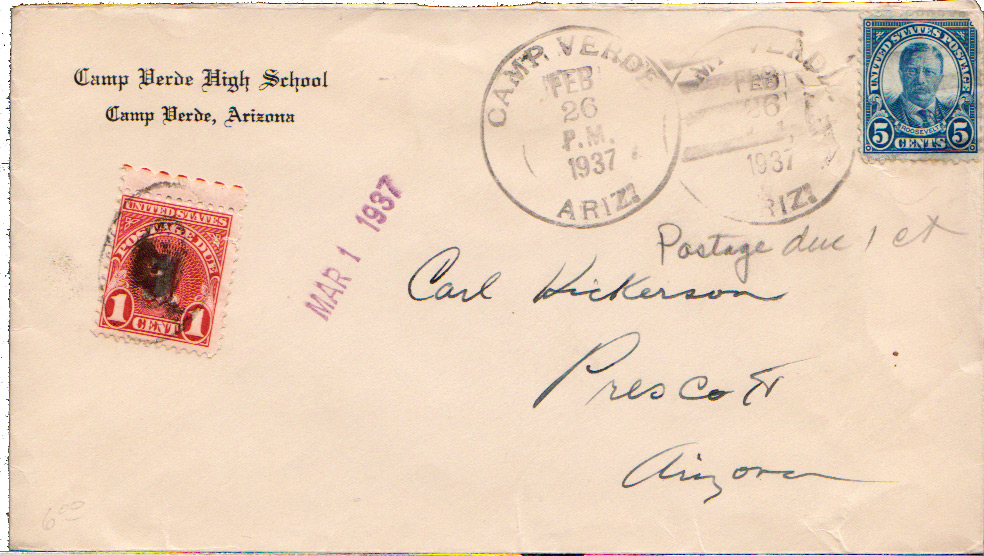 Camp Verde High School
Camp Verde, Arizona
CAMP VERDE
FEB
26
P.M.
1937
ARIZ.
VERDE
FEB
26
1937
RIZ.
UNITED STATES POSTAGE
ROOSEVELT
5 CENTS 5
UNITED STATES
POSTAGE DUE
1 CENT 1
MAR 1 1937
Postage due 1 ct
Carl Hickerson
Prescott
Arizona
6.00